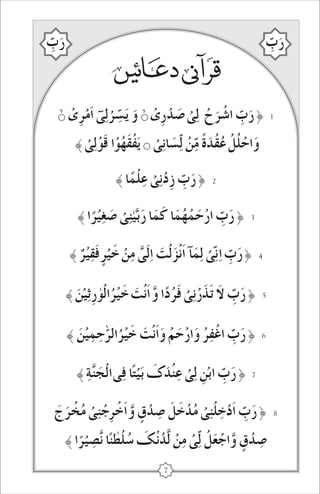 رَبِّ
رَبِّ
قرآنی دعائیں
1 ﴿ رَبِّ اشْرَحْ لِیْ صَدْرِیْ ۙ وَ یَسِّرْ لِیْۤ اَمْرِیْ ۙ
وَاحْلُلْ عُقْدَةً مِّنْ لِّسَانِیْ ۙ یَفْقَهُوْا قَوْلِیْ ﴾
2 ﴿ رَبِّ زِدْنِیْ عِلْمًا ﴾
3 ﴿ رَبِّ ارْحَمْهُمَا كَمَا رَبَّیٰنِیْ صَغِیْرًا ﴾
4 ﴿ رَبِّ اِنِّیْ لِمَاۤ اَنْزَلْتَ اِلَیَّ مِنْ خَیْرٍ فَقِیْرٌ ﴾
5 ﴿ رَبِّ لَا تَذَرْنِیْ فَرْدًا وَّ اَنْتَ خَیْرُ الْوٰرِثِیْنَ ﴾
6 ﴿ رَبِّ اغْفِرْ وَارْحَمْ وَاَنْتَ خَیْرُ الرّٰحِمِیْنَ ﴾
7 ﴿ رَبِّ ابْنِ لِیْ عِنْدَكَ بَیْتًا فِی الْجَنَّةِ ﴾
8 ﴿ رَبِّ اَدْخِلْنِیْ مُدْخَلَ صِدْقٍ وَّ اَخْرِجْنِیْ مُخْرَجَ
صِدْقٍ وَّاجْعَلْ لِّیْ مِنْ لَّدُنْكَ سُلْطٰنًا نَّصِیْرًا ﴾
7